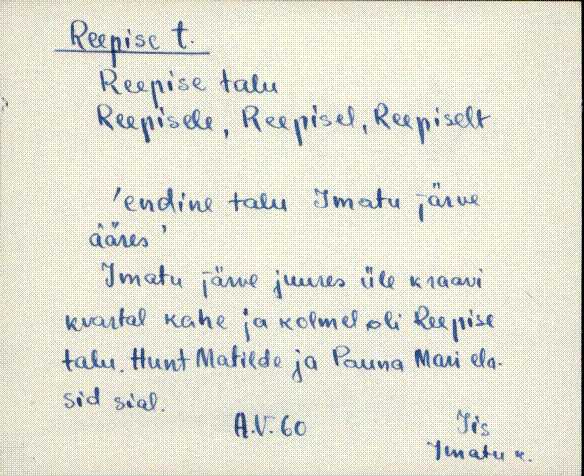 Reepise t.
Reepise talu
Reepisele, Reepisel, Reepiselt
'endine talu Imatu järve
ääres'
Imatu järve juures üle kraavi
kvartal kahe ja kolmel oli Reepise
talu. Hunt Matilde ja Pauna Mari ela-
sid sial.
A.V. 60
Iis
Imatu k.